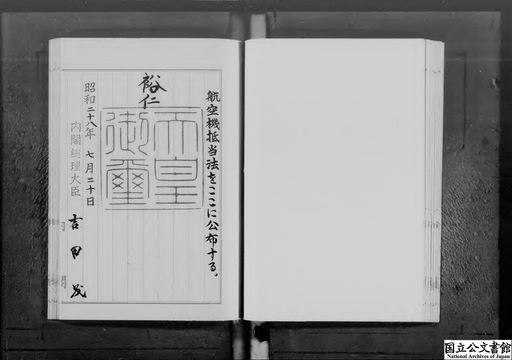 航空機抵当法をここに公布する。
裕仁
天皇御璽
昭和二十八年七月二十日
内閣総理大臣
吉田茂
国立公文書館
National Archives of Japan